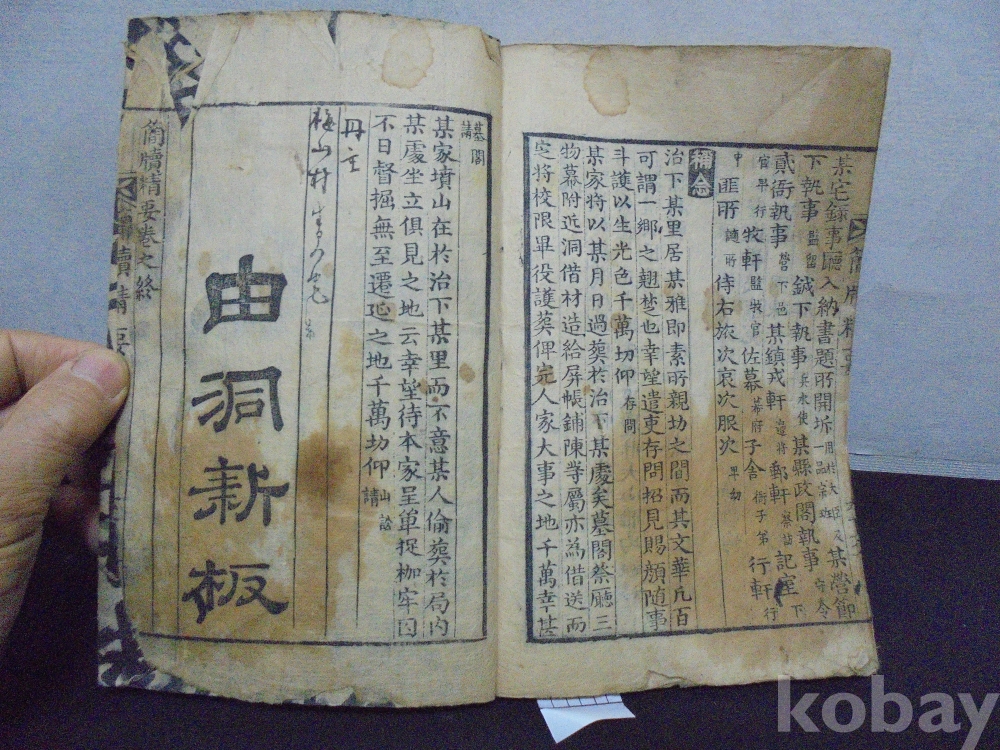 某宅錄事廳入納書題所開坼
下執事 監留 鉞下執事 兵水使 某縣政閣執事 守令
貳衙執事 營下邑 某鎭戎軒 邊將 郵軒 察訪 記室 下
牧軒 監牧官 佐幕 幕府 子舍 衙子弟 行軒 行
中 匪所 謫所 侍右旅次哀次服次
補念
治下某里居某雅即素所親坊之間而其文華凡百
可謂一鄕之翹楚也幸望遣吏存問招見賜顔隨事
斗護以生光色千萬切仰 存問
某家將以某月日過葬於治下某處矣墓閣祭廳三
物幕附近洞借材造給屛帳鋪陳等屬亦為借送而
定將校限畢役護葬俾完人家大事之地千萬幸甚
墓閣請
某家墳山在於治下某里而不意某人偷葬於局內
某處坐立俱見之地云幸望待本家呈單捉枷牢囚
不日督掘無至遷延之地千萬切仰 山訟請
丹主
梅山村
由洞新板
簡牘精要卷之終
簡牘精要
kobay